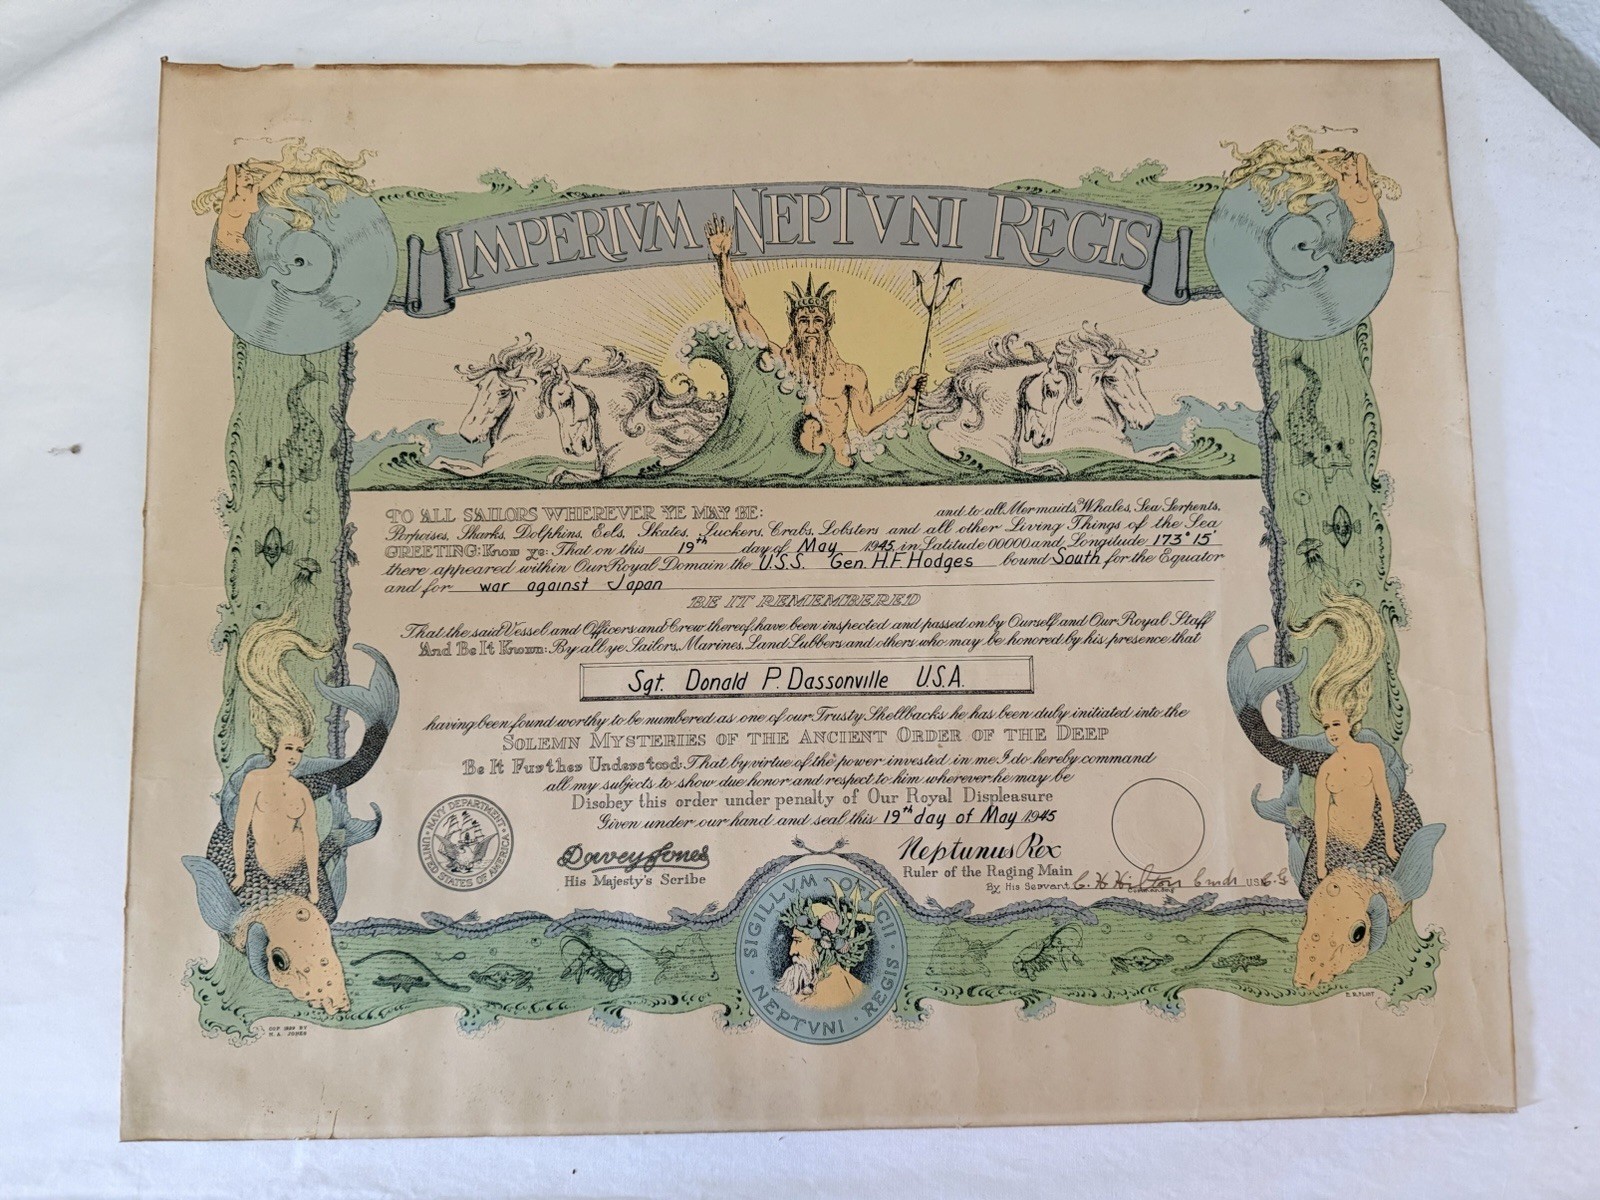 IMPERIVM NEPTVNI REGIS
TO ALL SAILORS WHEREVER YE MAY BE: and to all Mermaids, Whales, Sea Serpents,
Porpoises, Sharks, Dolphins, Eels, Skates, Suckers, Crabs, Lobsters and all other Living Things of the Sea
GREETING: Know ye: That on this 19th day of May 1945 in Latitude 00000 and Longitude 173° 15'
there appeared within Our Royal Domain the U.S.S. Gen. H.F. Hodges bound South for the Equator
and for war against Japan
BE IT REMEMBERED
That the said Vessel and Officers and Crew thereof have been inspected and passed on by Ourself and Our Royal Staff
And Be It Known: By all ye Sailors, Marines, Land Lubbers and others who may be honored by his presence that
Sgt. Donald P. Dassonville U.S.A.
having been found worthy to be numbered as one of our Trusty Shellbacks he has been duly initiated into the
SOLEMN MYSTERIES OF THE ANCIENT ORDER OF THE DEEP
Be It Further Understood: That by virtue of the power invested in me I do hereby command
all my subjects to show due honor and respect to him wherever he may be
Disobey this order under penalty of Our Royal Displeasure
Given under our hand and seal this 19th day of May 1945
NAVY DEPARTMENT
UNITED STATES OF AMERICA
Davey Jones
His Majesty's Scribe
Neptunus Rex
Ruler of the Raging Main
By His Servant C. H. Hilton Cmdr USCG
SIGILLVM OFFICII
NEPTVNI REGIS
COP BY
H. A. JONES